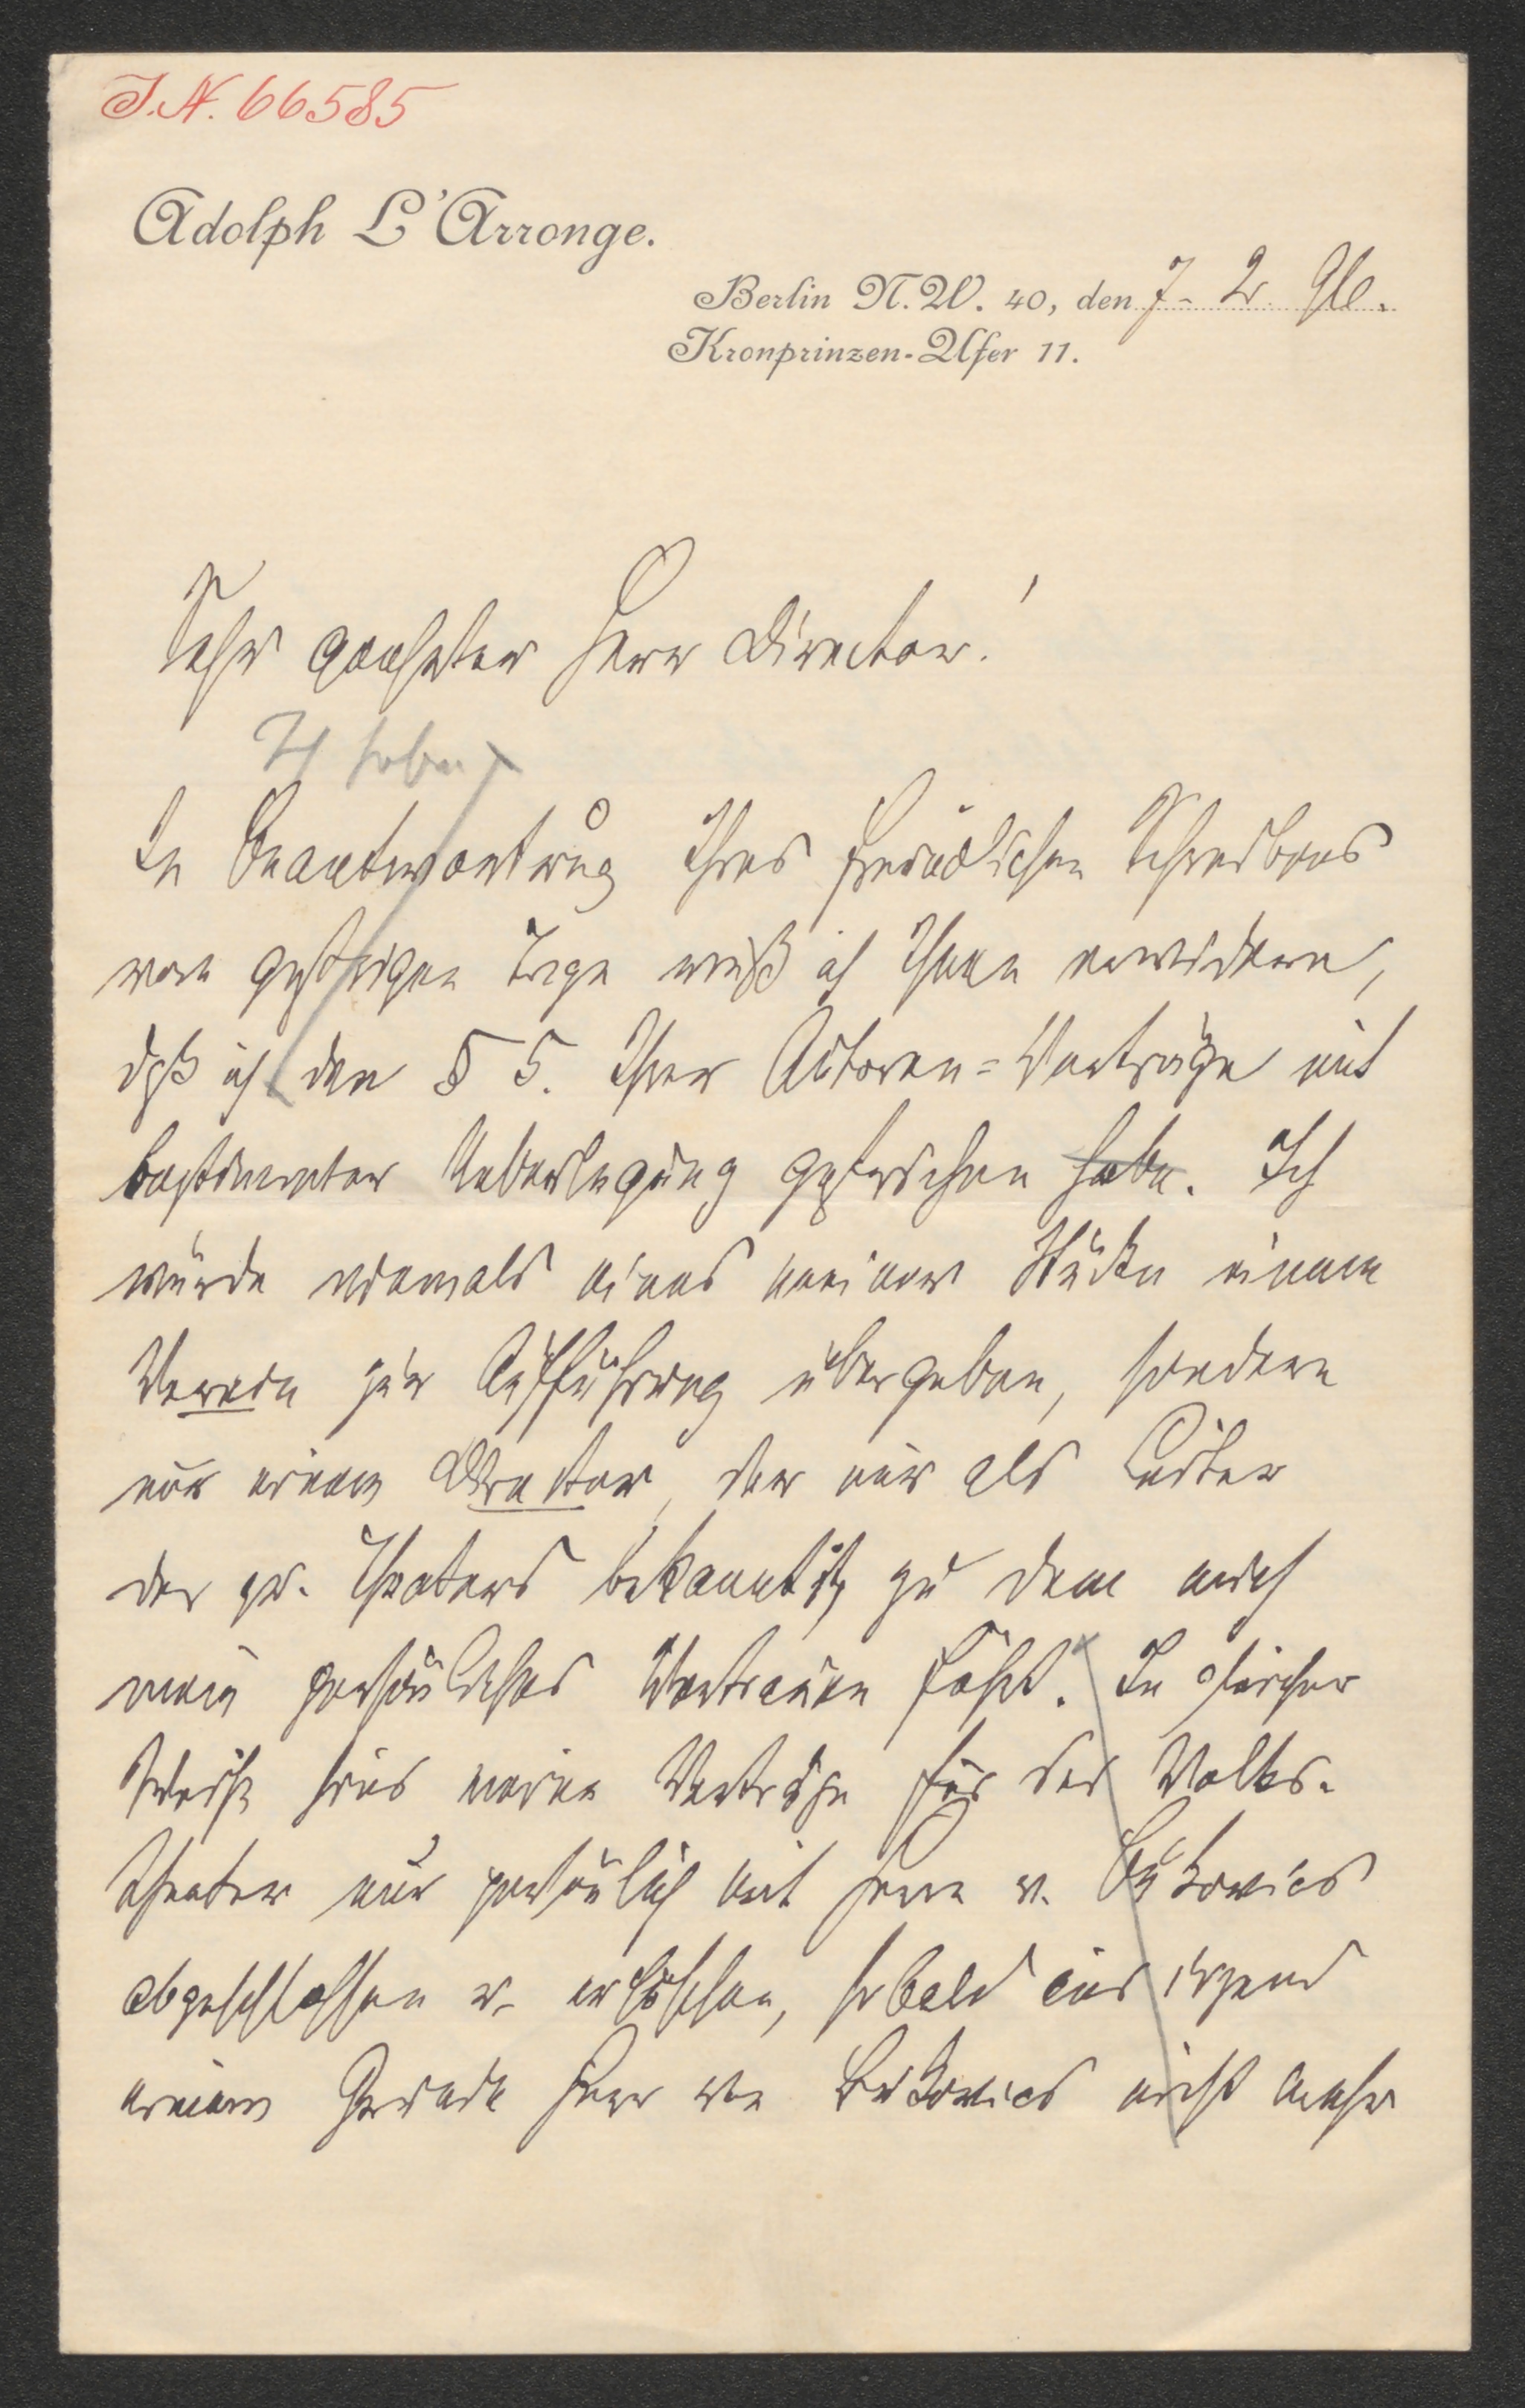 J.N. 66585
Adolph L'Arronge.
Berlin N.W. 40, den 7. 2. 98.
Kronprinzen-Ufer 11.
Sehr geehrter Herr Director!
Ich habe
In Beantwortung Ihres freundlichen Schreibens
vom gestrigen Tage muß ich Ihnen erwidern,
daß ich den § 5. Ihrer Autoren-Verträge mit
bestimmter Ueberlegung gestrichen habe. Ich
würde niemals eines meiner Stücke einem
Verein zur Aufführung übergeben, sondern
nur einem Director, der mir als Leiter
des gr. Theaters bekannt ist, zu dem mich
mein persönliches Vertrauen führt. In gleicher
Weise sind meine Verträge für das Volks-
theater nur persönlich mit Herrn v. Bukovics
abgeschlossen u. erlöschen, sobald aus irgend
einem Grunde Herr von Bukovics nicht mehr